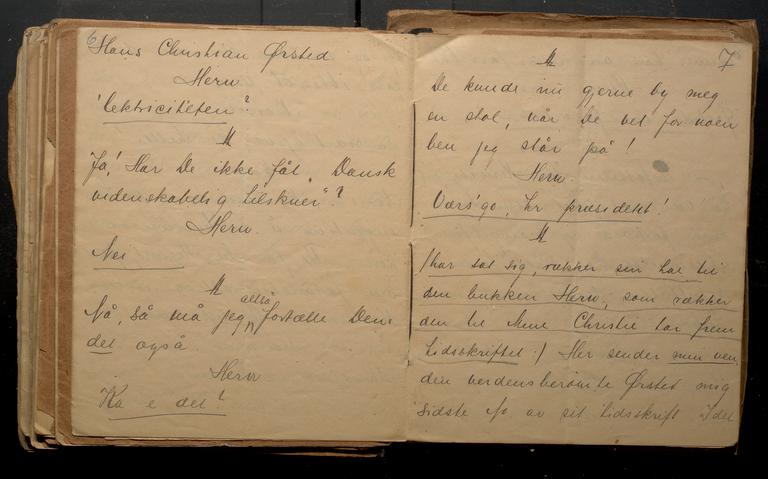 6
Hans Christian Ørsted
Herw.
"lektriciteten?
M
Ja! Har De ikke fåt "Dansk
videnskabelig tilskuer"?
Herw.
Nei
M
Nå, så må jeg altså fortælle Dem
det også
Herw
Ka e det?
7
M
De kunde nu gjerne by meg
en stol, når De vet for noen
ben jeg står på!
Herw.
Værs'go, hr præsident!
M
/har sat sig, rækker sin hat til
den bukken Herw, som rækker
den til Mme Christie tar frem
tidsskriftet :/ Her sender min ven
den verdensberømte Ørsted mig
sidste no av sit tidsskrift I det